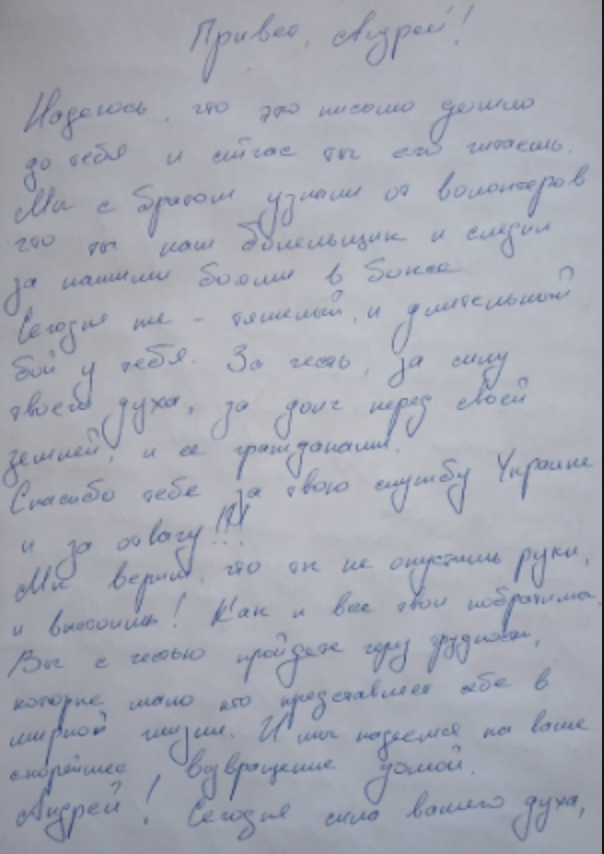 Привет, Андрей!
Надеюсь, что это письмо дошло
до тебя и сейчас ты его читаешь.
Мы с братом узнали от волонтеров
что ты наш болельщик и следил
за нашими боями в боксе
Сегодня же - тяжелый и длительный
бой у тебя. За честь, за силу
твоего духа, за долг перед своей
землей, и ее гражданами.
Спасибо тебе за твою службу Украине
и за отвагу!!!
Мы верим, что ты не опустишь руки,
и выстоишь! Как и все твои побратимы.
Вы с честью пройдете через трудности,
которые мало кто представляет себе в
мирной жизни. И мы надеемся на ваше
скорейшее возвращение домой.
Андрей! Сегодня сила вашего духа,